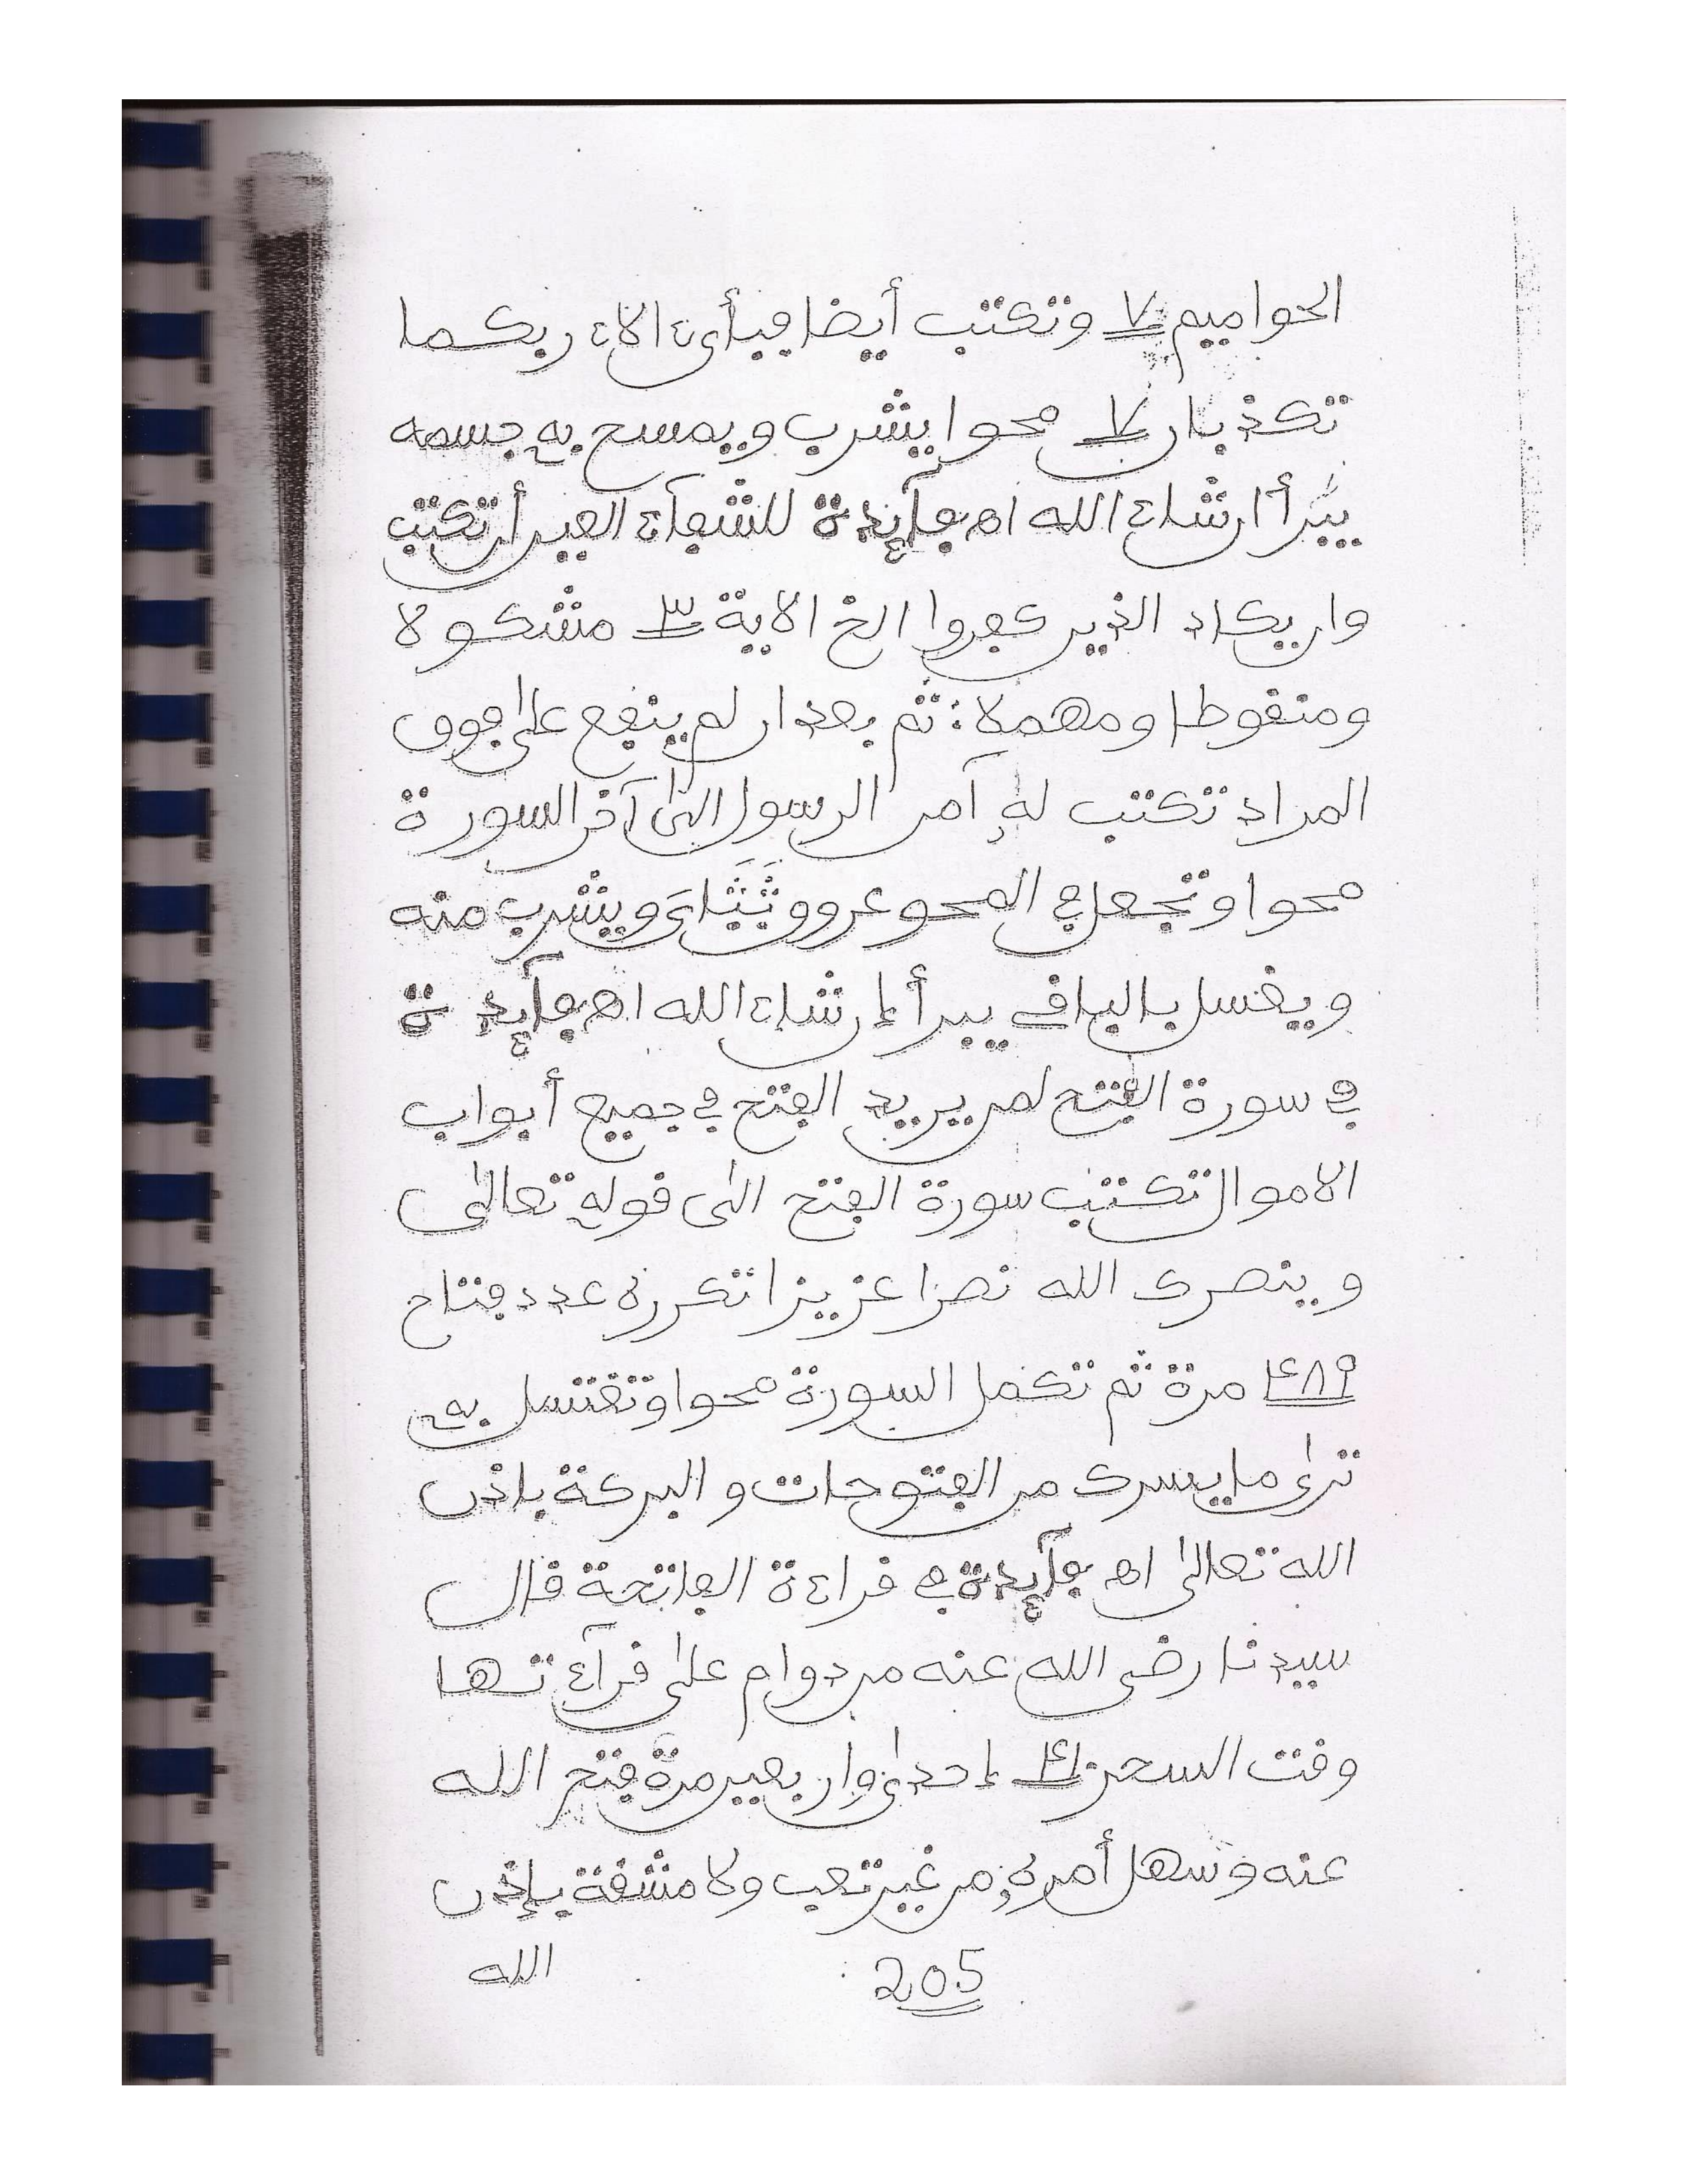 الحواميم ٧ وتكتب أيضا فبأى ءالاء ربكما
تكذبان ٧ محوا يشرب ويمسح به جسمه
يبرأ ان شاء الله اه فآئدة للشفاء العين أن تكتب
وان يكاد الذين كفروا الخ الاية ٣ مشكولا
ومنقوطا ومهملا: ثم بعد ان لم ينفع على فوق
المراد تكتب له آمن الرسول الى آخر السورة
محوا وتجعل في المحو عروق ويشرب منه
ويغسل بالباقي يبرأ إن شاء الله اه فآئدة
في سورة الفتح لمن يريد الفتح في جميع أبواب
الاموال تكتب سورة الفتح الى قوله تعالى
وينصرك الله نصرا عزيزا تكرره عدد فتاح
٤٨٩ مرة ثم تكمل السورة محوا وتغتسل به
ترى ما يسرك من الفتوحات والبركة باذن
الله تعالى اه فآئدة في قراءة الفاتحة قال
سيدنا رضى الله عنه من دوام على قرآءتها
وقت السحر ٤١ إحدى واربعين مرة فتح الله
عنه وسهل أمره من غير تعب ولا مشقة بإذن
الله
205